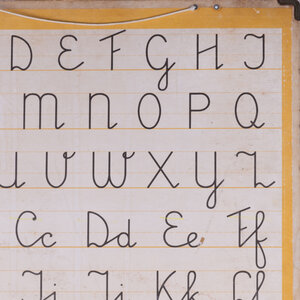 D E F G H I
m n O P Q
U V W X Y Z
Cc Dd Ee Ff
Ii Jj Kk Ll